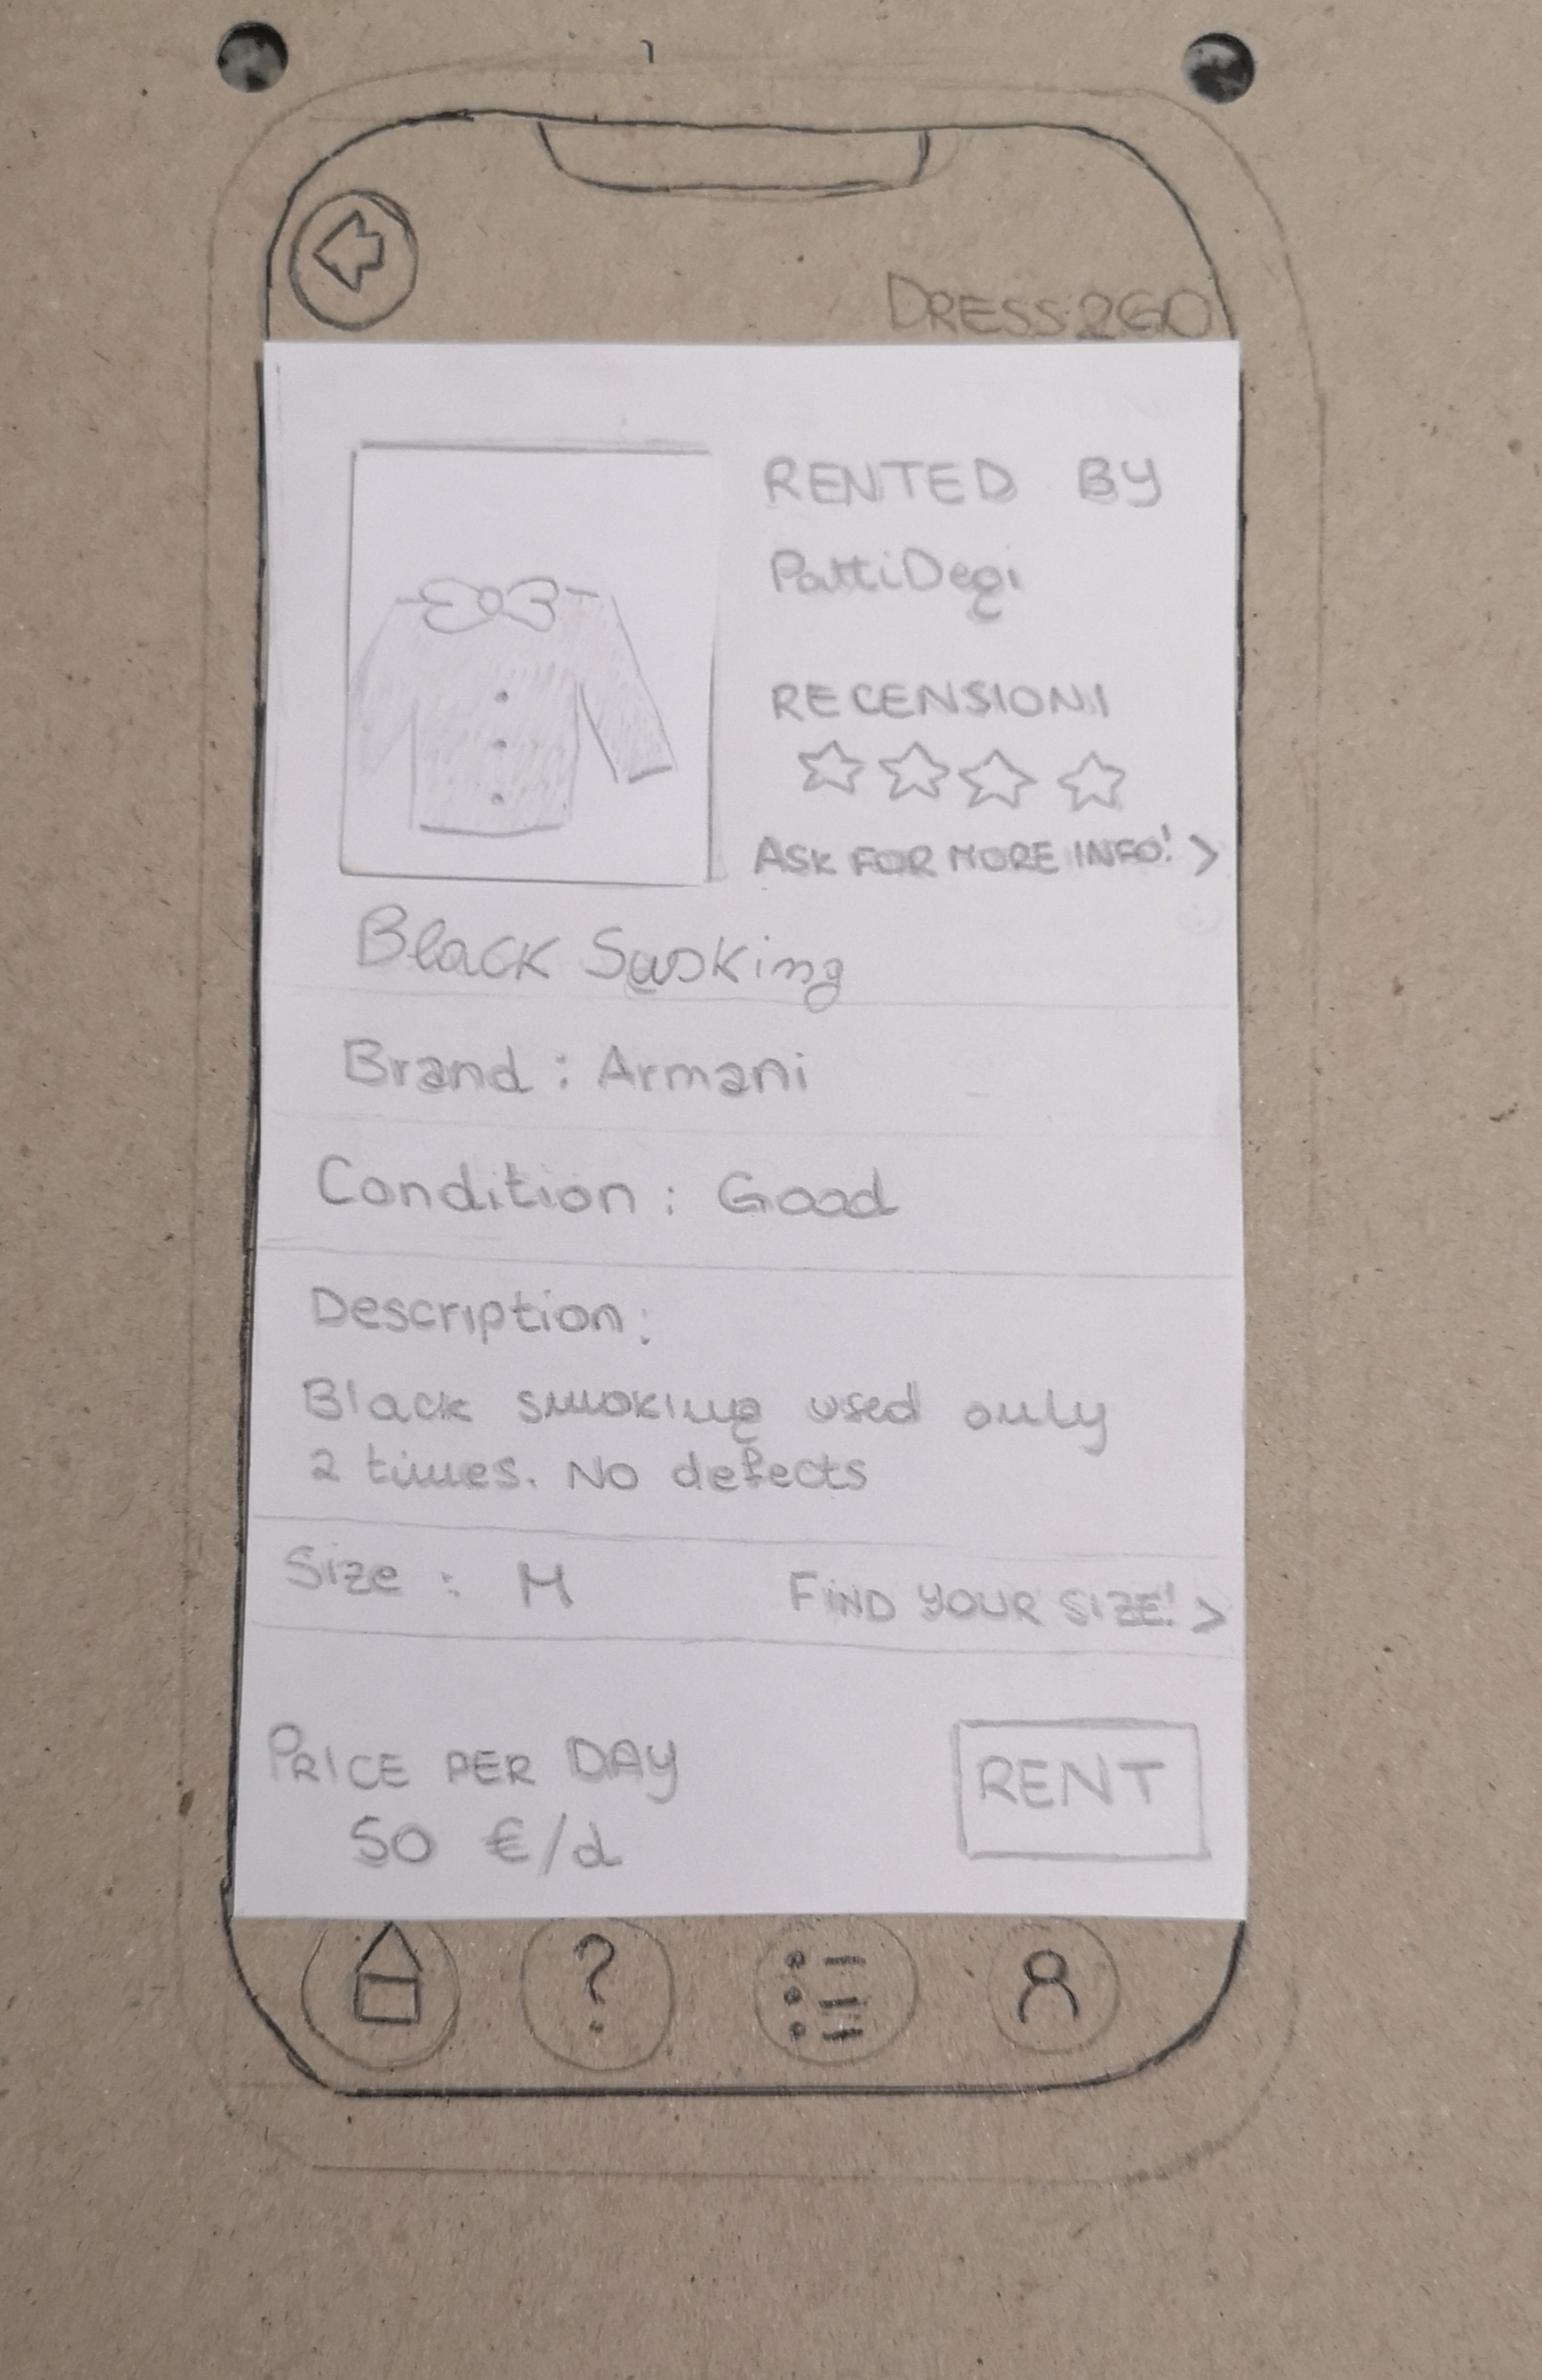 DRESS2GO
RENTED BY
PattiDegi
RECENSIONI
ASK FOR MORE INFO! >
Black Smoking
Brand : Armani
Condition : Good
Description:
Black smoking used only
2 times. No defects
Size : M
FIND YOUR SIZE! >
PRICE PER DAY
50 €/d
RENT
?